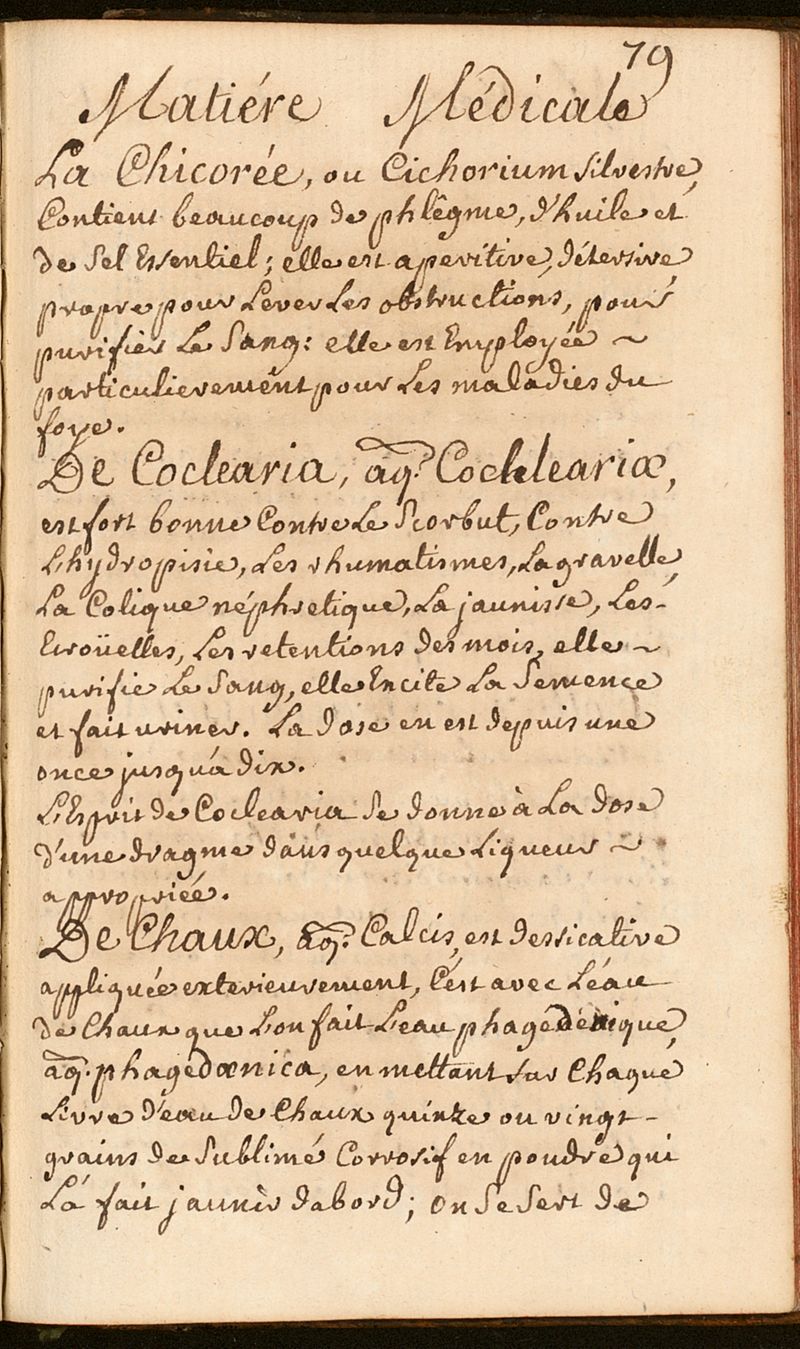 79
Matiére Médicale
La Chicorée, ou Cichorium silvestre,
Contient beaucoup de phlêgme, d'huile et
de sel Essentiel; elle est aperitive, détersive,
propre pour Lever Les obstructions, pour
purifier Le Sang: elle est Employée ~
particulierement pour Les maladies du
foye.
De Coclearia, aq.^e Cochleariæ,
est fort bonne Contre Le Scorbut, Contre
L'hydropisie, Les rhumatismes, La gravelle,
La Colique néphretique, La jaunisse, Les-
Ecroüelles, Les retentions des mois, elle ~
purifie Le Sang, elle Encite La Semence
et fait uriner. La dose en est depuis une
once jusqu'a dix.
L'Esprit de Coclearia se donne à La dose
d'une dragme dans quelque Liqueur ~
appropriée.
De Chaux, aq.^e Calcis, est dessicative
appliquée exterieurement, C'est avec L'éau
de Chaux que L'on fait L'eau phagédénique,
aq. phagedœnica, en mettant sur Chaque
Livre d'eau de Chaux quinze ou vingt-
grains de Sublimé Corrosif en poudre qui
La fait jaunir dabord; on se sert de